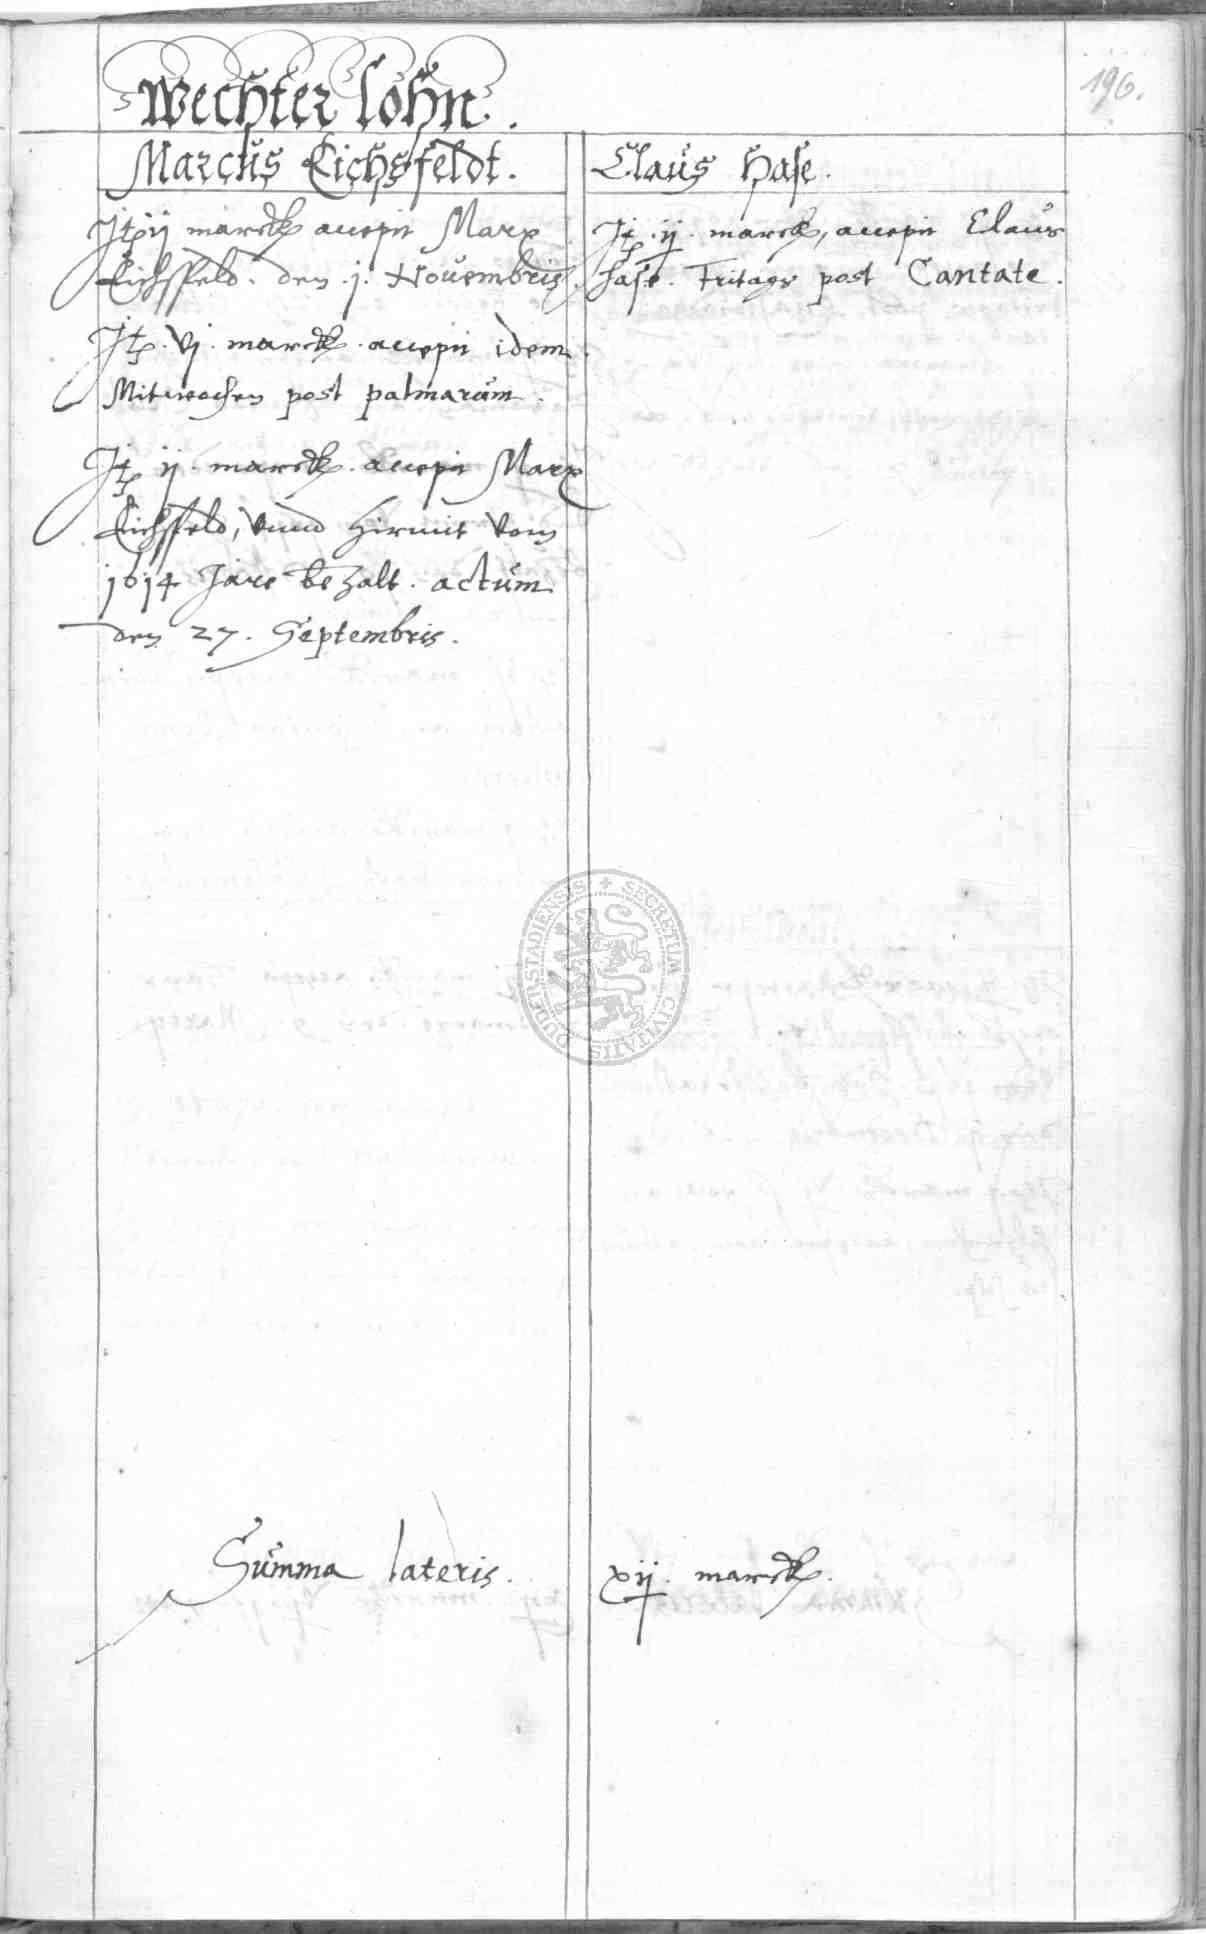 196.
Wechter lohn.
Marcus Eichsfeldt.
It ij marck accepit Marx
Eichsfeld. den .j. Novembris.
It. vj. marck. accepit idem
Mitwochen post palmarum.
It ij. marck. accepit Marx
Eichsfeld, vnnd hirmit vom
1614 Jare bezalt. actum
den 27. Septembris.
Claus Hase.
It. ij. marck, accepit Claus
Hase. Fritags post Cantate.
Summa lateris. xij. marck.
SECRETUM CIVITATIS DUDERSTADIENSIS